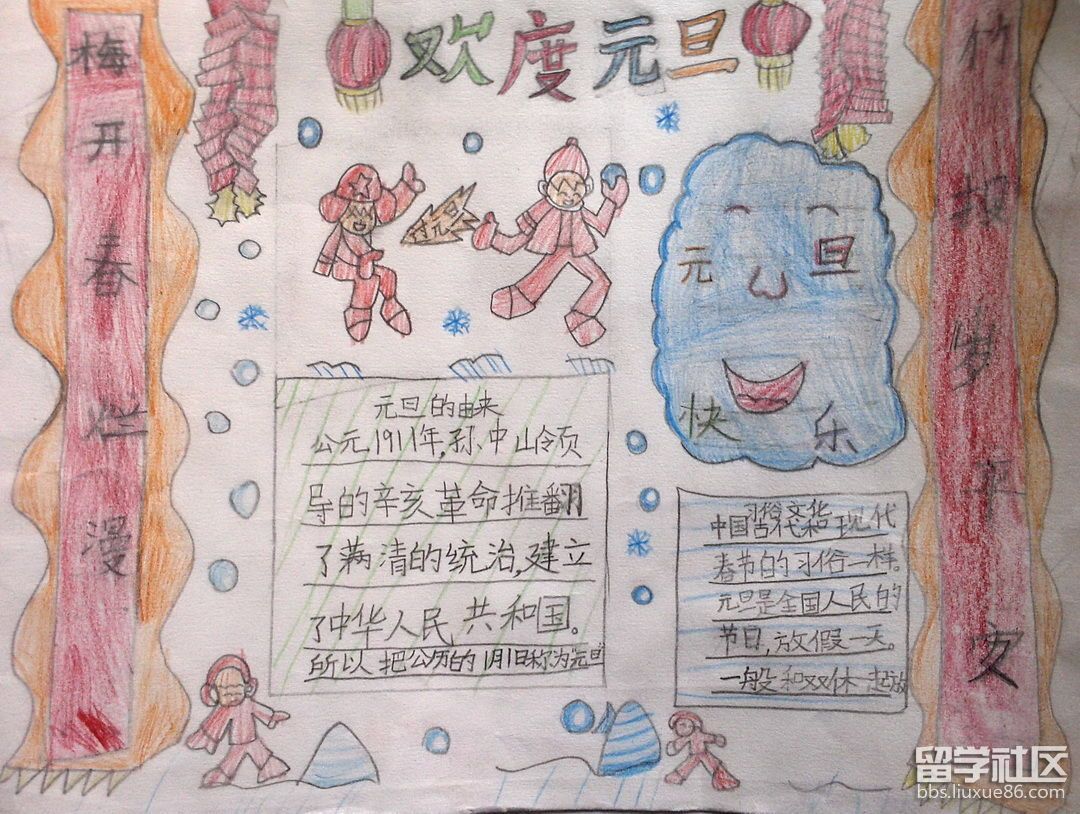 欢度元旦
梅开春烂漫
竹报岁平安
元旦
快乐
元旦的由来
公元1911年,孙中山领
导的辛亥革命推翻
了满清的统治,建立
了中华人民共和国。
所以把公历的1月1日称为"元旦
习俗文化
中国古代和现代
春节的习俗一样。
元旦是全国人民的
节日,放假一天。
一般和双休一起放
留学社区
bbs.liuxue86.com